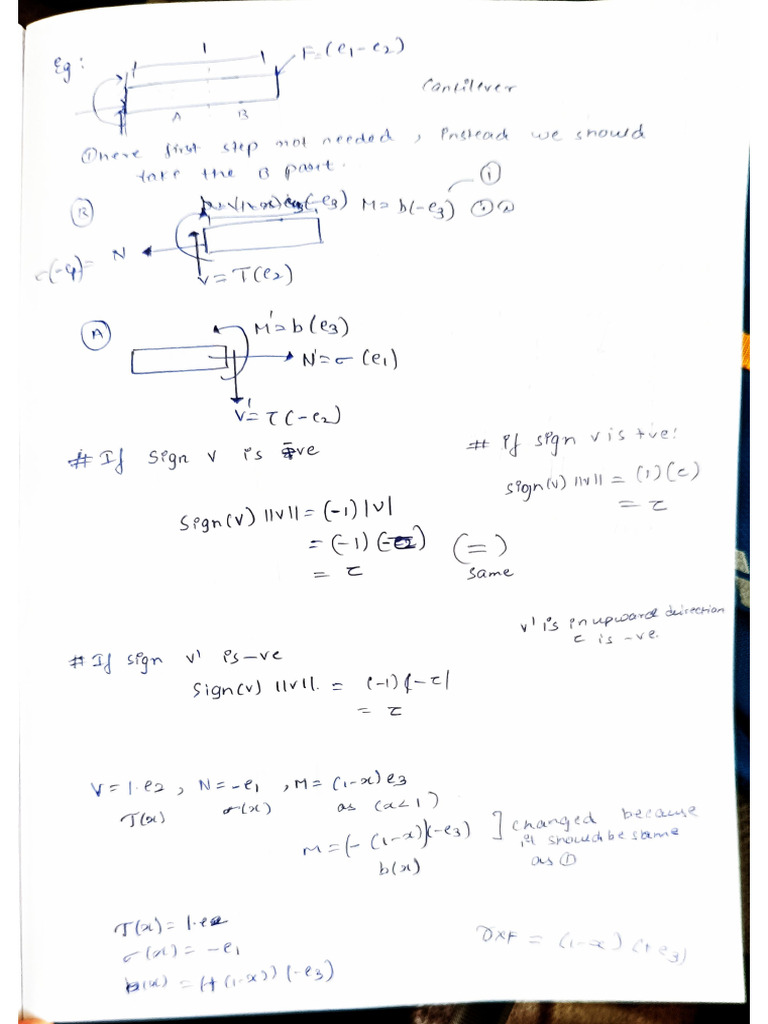 Eg:
1
F=(e1-e2)
Cantilever
A B
① here first step not needed, instead we should
take the B part.
①
B
(-e3) M=b(-e3)
(-e1)= N
V=T(e2)
A
M'=b(e3)
N'=σ(e1)
V'=τ(-e2)
# If Sign V is -ve
# if sign v is +ve:
Sign(v) ||v|| = (1)(τ)
= τ
Sign(V) ||V|| = (-1)|V|
= (-1) (-τ) (=)
= τ same
v' is in upward direction
τ is -ve.
# If sign v' is -ve
Sign(v) ||v||. = (-1)(-τ)
= τ
V=1.e2, N=-e1, M=(1-x)e3
T(x) σ(x) as (x<1)
M=(-(1-x))(-e3) ] changed because
it should be same
as ①
b(x)
T(x)=1.e2
σ(x)=-e1
b(x) = (+(1-x))(-e3)
r×F = (1-x)(+e3)